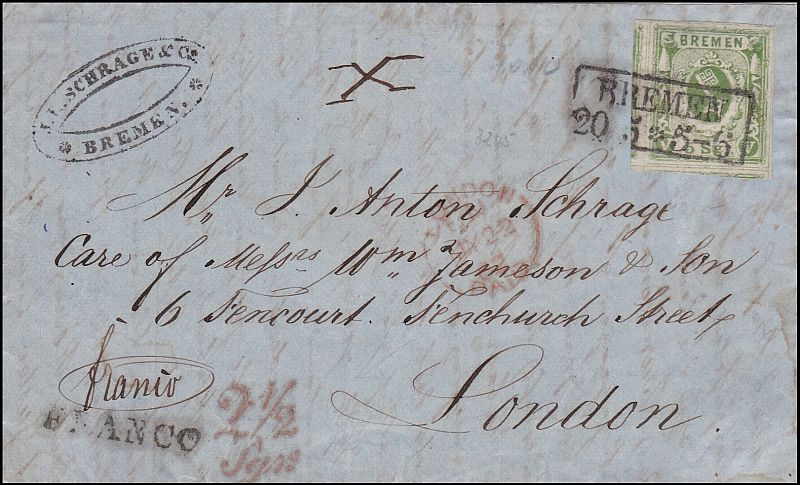 J. L. SCHRAGE & Co.
BREMEN.
X
BREMEN
BREMEN
20 5 * 5-6
Mr. J. Anton Schrage
Care of Messrs Wm. Jameson & Son
6 Fencourt. Fenchurch Street
London.
franco
FRANCO
2 1/2
Sgr
LONDON
PAID